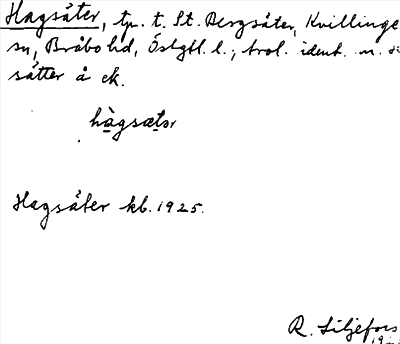 Hagsäter, tp. t. St. Bergsäter, Kvillinge
sn, Bråbo hd, Östgtl. l.; trol. ident. m.
sätter å ek.
hàgsætər
Hagsäter kb. 1925.
R. Liljefors